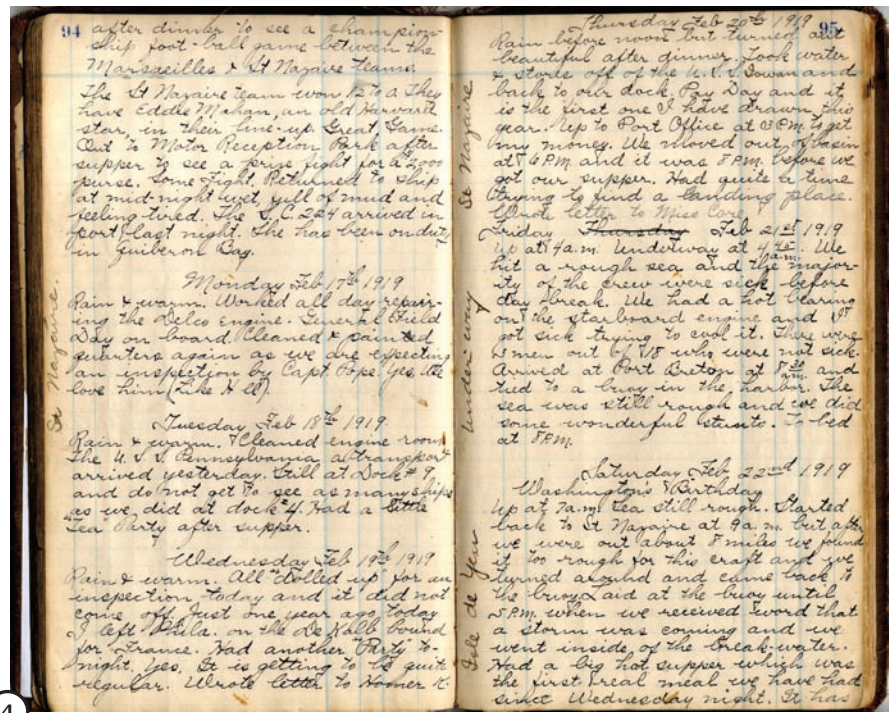 94
after dinner to see a champion-
ship foot-ball game between the
Marsaeilles & St Nazaire teams.
The St Nazaire team won 12 to a They
have Eddie Mahan, an old Harvard
star, in their line-up. Great Game.
Out to Motor Reception Park after
supper to see a prize fight for a 2000
purse. Some Fight. Returned to ship
at mid-night wet, full of mud and
feeling tired. The S.C. 224 arrived in
port last night. She has been on duty
in Quiberon Bay.
St Nazaire.
Monday Feb 17th 1919
Rain & warm. Worked all day repair-
ing the Delco Engine. General Field
Day on board. Cleaned & painted
quarters again as we are expecting
an inspection by Capt Pope. Yes, We
love him (Like H-ll).
Tuesday Feb 18th 1919.
Rain & warm. Cleaned engine room
The U.S.S. Pennsylvania a transport
arrived yesterday. Still at Dock # 9
and do not get to see as many ships
as we did at dock #4. Had a little
"Tea" Party after supper.
Wednesday Feb 19th 1919
Rain & warm. All "dolled up" for an
inspection today and it did not
come off. Just one year ago today
I left Phila. on the De Kalb bound
for France. Had another Party to-
night. Yes, It is getting to be quite
regular. Wrote letter to Homer K.
95
Thursday Feb 20th 1919
Rain before noon but turned out
beautiful after dinner. Took water
& stores off of the U.S.S. Gowan and
back to our dock. Pay Day and it
is the first one I have drawn this
year. Up to Port Office at 3 P.M. to get
my money. We moved out of basin
at 6 P.M. and it was 8 P.M. before we
got our supper. Had quite a time
trying to find a landing place.
Wrote letter to Miss
St Nazaire
Friday Thursday Feb 21st 1919
Up at 4 a.m. Underway at 4 45 a.m. We
hit a rough sea and the major-
ity of the crew were sick before
day-break. We had a hot bearing
on the starboard engine and I
got sick trying to cool it. There were
3 men out of 18 who were not sick.
Arrived at Port Breton at 8 30 a.m. and
tied to a buoy in the harbor. The
sea was still rough and we did
some wonderful stunts. To bed
at 8 P.M.
Under way
Saturday Feb 22nd 1919
Washington's Birthday
Up at 7 a.m. Sea still rough. Started
back to St Nazaire at 9 a.m. but after
we were out about 8 miles we found
it too rough for this craft and we
turned around and came back to
the buoy. Laid at the buoy until
5 P.M. when we received word that
a storm was coming and we
went inside of the break-water.
Had a big hot supper which was
the first real meal we have had
since Wednesday night. It has
Isle de Yeu
4